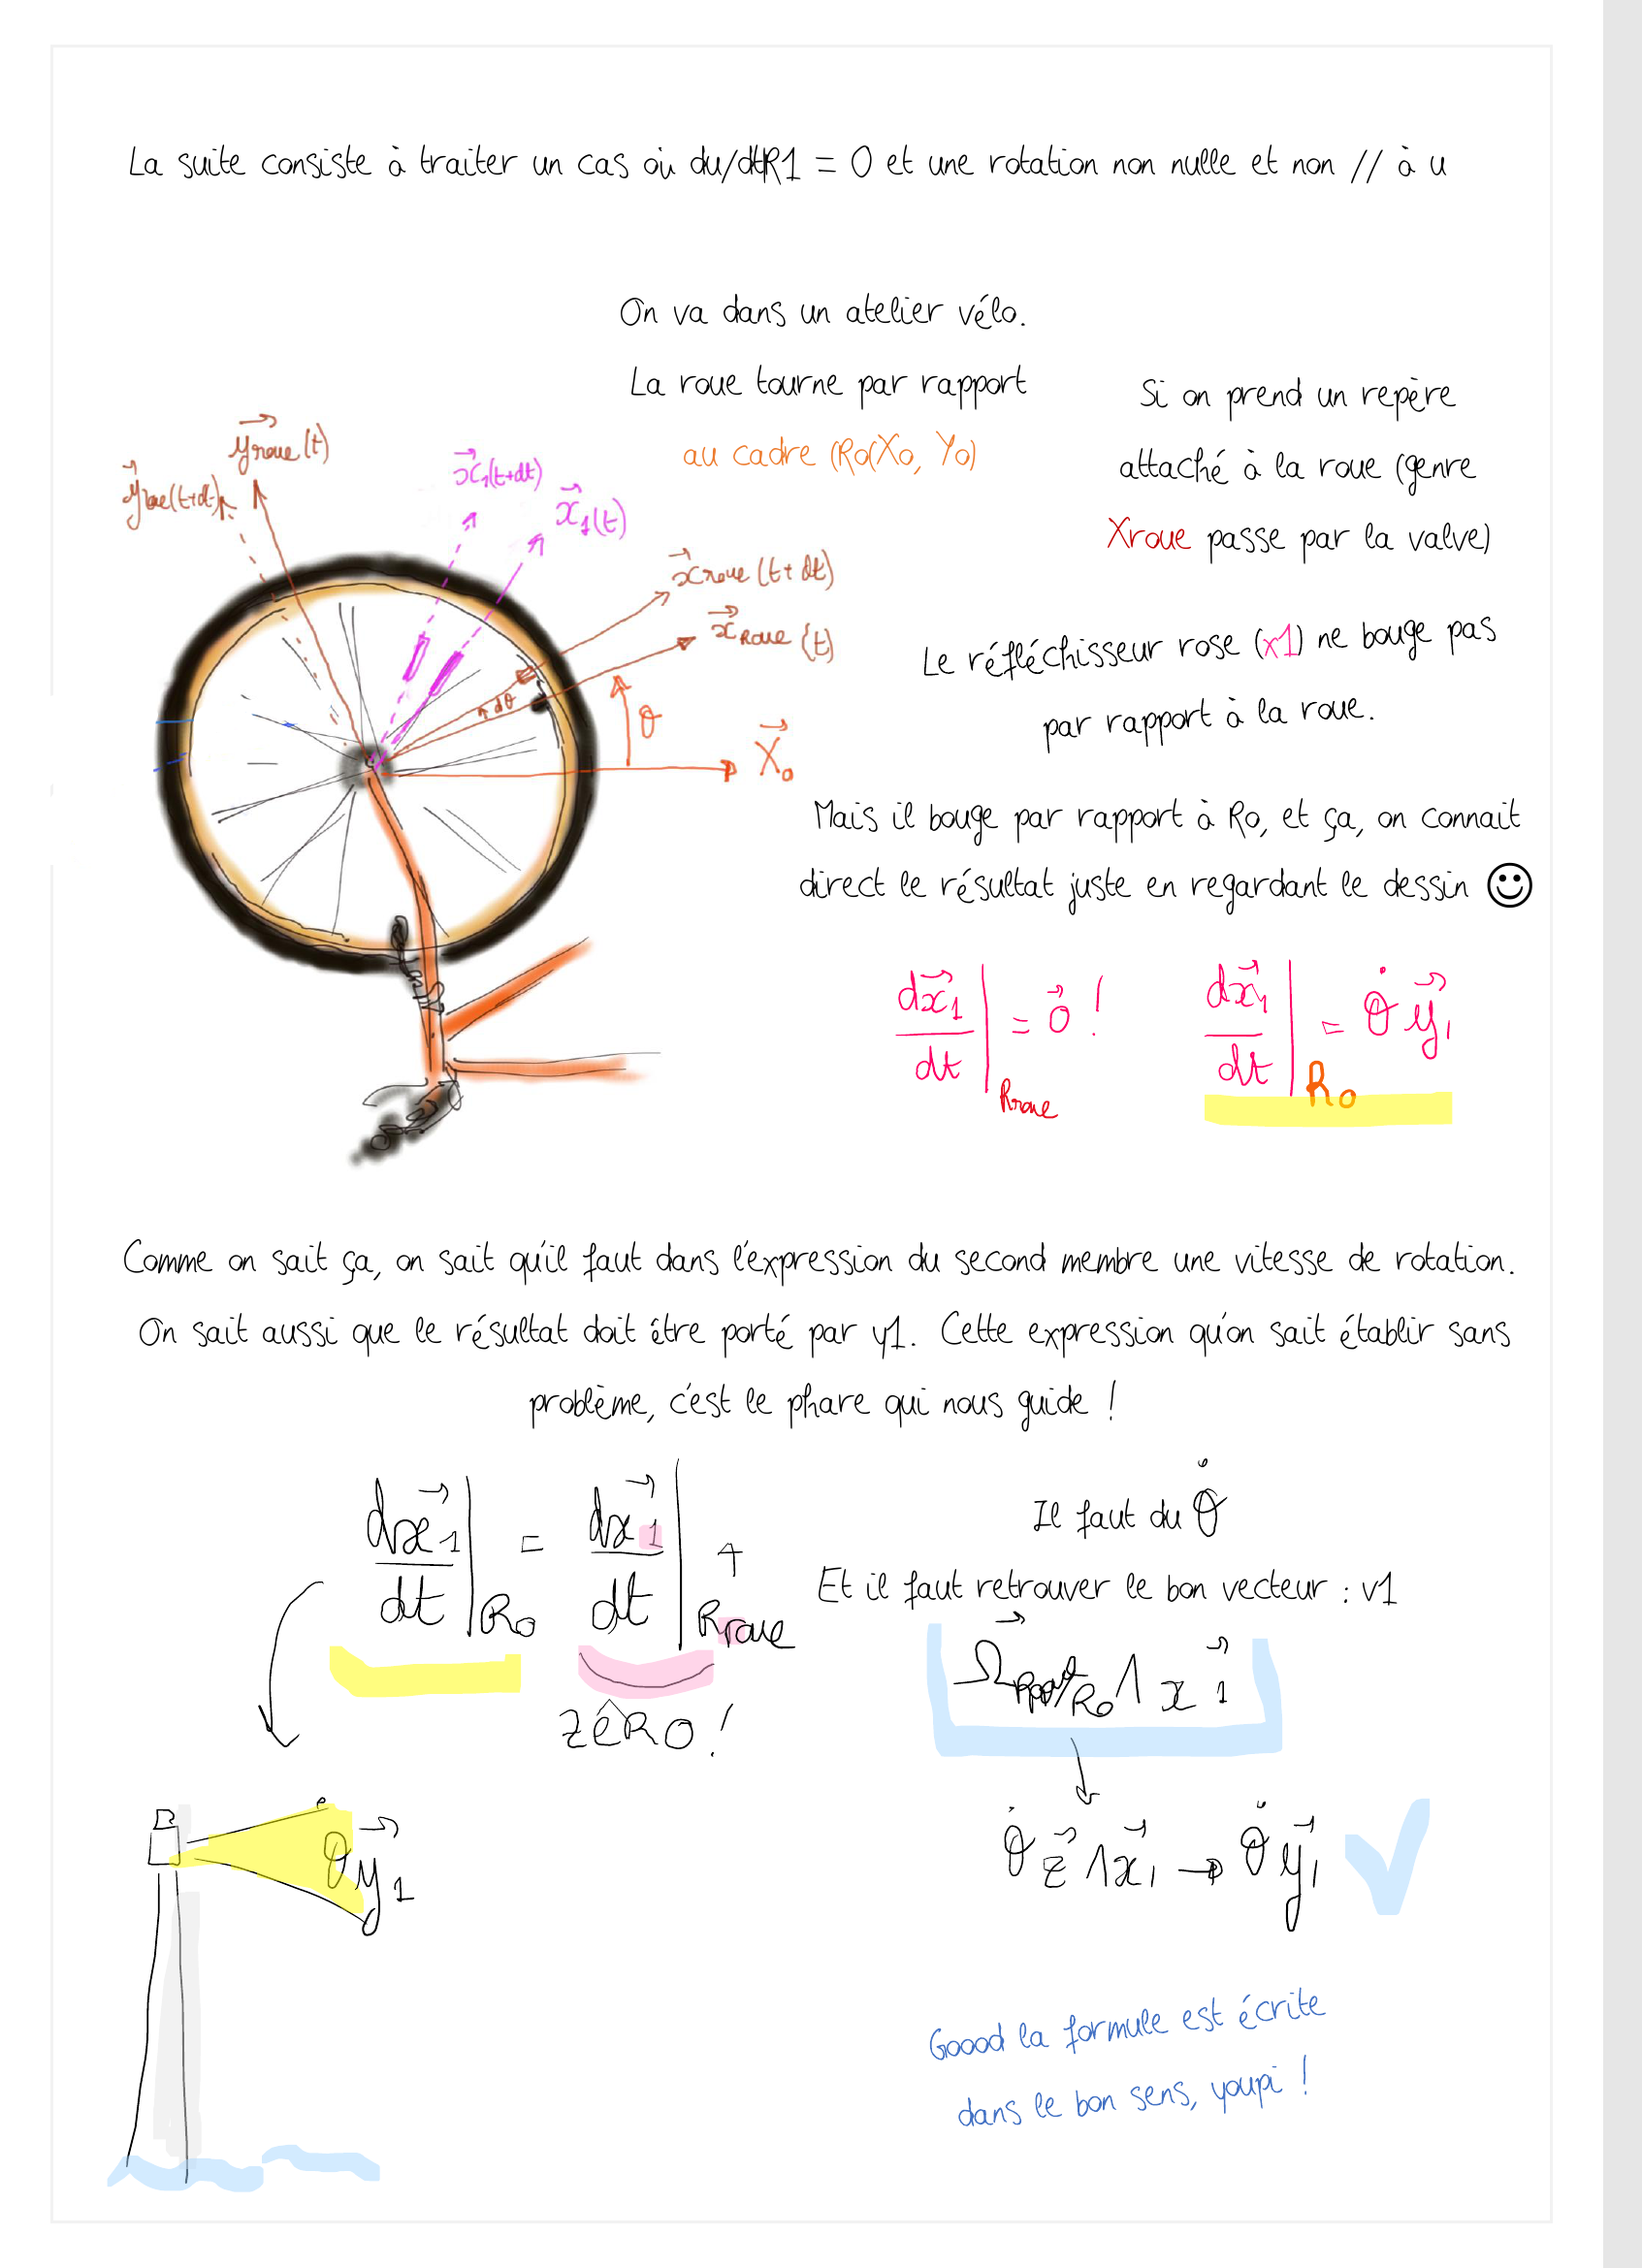 La suite consiste à traiter un cas où du/dtR1 = 0 et une rotation non nulle et non // à u
On va dans un atelier vélo.
La roue tourne par rapport
au cadre (Ro(Xo, Yo)
Si on prend un repère
attaché à la roue (genre
Xroue passe par la valve)
y⃗roue(t)
y⃗roue(t+dt)
x⃗1(t+dt)
x⃗1(t)
x⃗roue(t+dt)
x⃗Roue(t)
dθ
θ
X⃗o
Le réfléchisseur rose (x1) ne bouge pas
par rapport à la roue.
Mais il bouge par rapport à Ro, et ça, on connait
direct le résultat juste en regardant le dessin ☺
dx⃗1/dt|Rroue = 0⃗ !
dx⃗1/dt|Ro = θ̇ y⃗1
Comme on sait ça, on sait qu'il faut dans l'expression du second membre une vitesse de rotation.
On sait aussi que le résultat doit être porté par y1. Cette expression qu'on sait établir sans
problème, c'est le phare qui nous guide !
dx⃗1/dt|Ro = dx⃗1/dt|Rroue +
Il faut du θ̇
Et il faut retrouver le bon vecteur : v1
Ω⃗Rroue/Ro ∧ x⃗1
zéRO !
θ̇ y⃗1
θ̇ z⃗ ∧ x⃗1 → θ̇ y⃗1
Goood la formule est écrite
dans le bon sens, youpi !